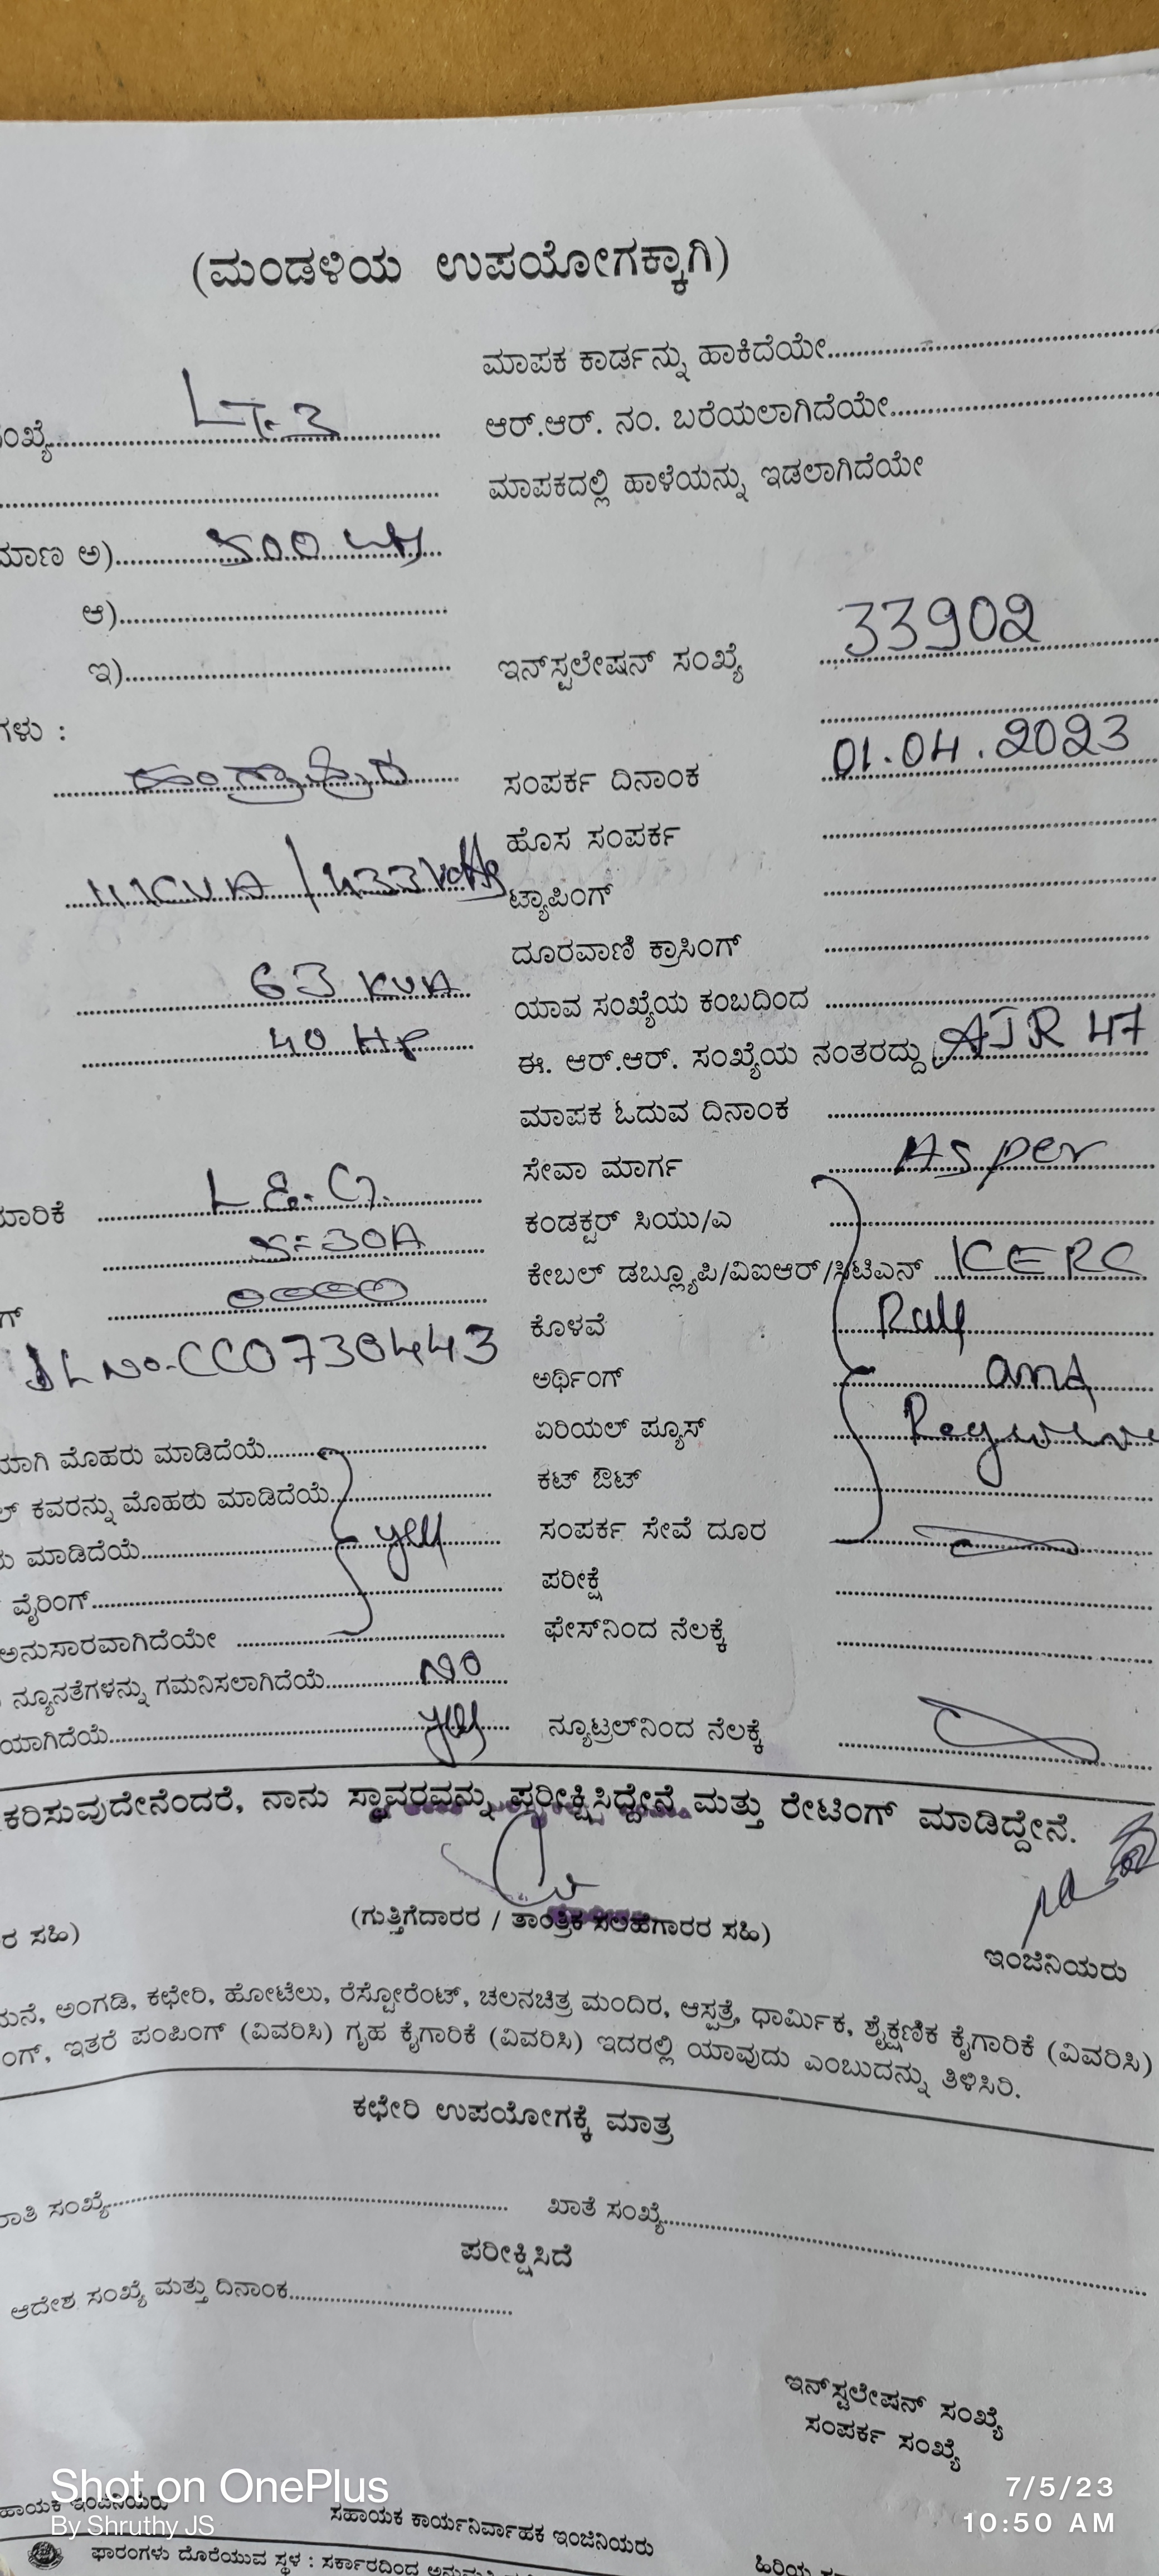 (ಮಂಡಳಿಯ ಉಪಯೋಗಕ್ಕಾಗಿ)
ಮಾಪಕ ಕಾರ್ಡನ್ನು ಹಾಕಿದೆಯೇ
ಸಂಖ್ಯೆ LT.3 ಆರ್.ಆರ್. ನಂ. ಬರೆಯಲಾಗಿದೆಯೇ
ಮಾಪಕದಲ್ಲಿ ಹಾಳೆಯನ್ನು ಇಡಲಾಗಿದೆಯೇ
ಮಾಣ ಅ) 500
ಆ)
ಇ) ಇನ್‌ಸ್ಟಲೇಷನ್ ಸಂಖ್ಯೆ 33902
ಗಳು :
ಸಂಪರ್ಕ ದಿನಾಂಕ 01.04.2023
ಹೊಸ ಸಂಪರ್ಕ
11KVA / 433 Volts ಟ್ಯಾಪಿಂಗ್
ದೂರವಾಣಿ ಕ್ರಾಸಿಂಗ್
63 KVA ಯಾವ ಸಂಖ್ಯೆಯ ಕಂಬದಿಂದ
40 HP ಈ. ಆರ್.ಆರ್. ಸಂಖ್ಯೆಯ ನಂತರದ್ದು AJR 47
ಮಾಪಕ ಓದುವ ದಿನಾಂಕ
ಸೇವಾ ಮಾರ್ಗ As per
ಮಾರಿಕೆ L&G ಕಂಡಕ್ಟರ್ ಸಿಯು/ಎ
5-30A ಕೇಬಲ್ ಡಬ್ಲ್ಯೂಪಿ/ವಿಐಆರ್/ಸಿಟಿಎನ್ KERC
ಗ್ 0000 ಕೊಳವೆ Rule
SL No-CC0730443 ಅರ್ಥಿಂಗ್ and
ಏರಿಯಲ್ ಪ್ಯೂಸ್
ಯಾಗಿ ಮೊಹರು ಮಾಡಿದೆಯೆ ಕಟ್ ಔಟ್
ಲ್ ಕವರನ್ನು ಮೊಹರು ಮಾಡಿದೆಯೆ ಸಂಪರ್ಕ ಸೇವೆ ದೂರ
ರು ಮಾಡಿದೆಯೆ yes ಪರೀಕ್ಷೆ
ವೈರಿಂಗ್ ಫೇಸ್‌ನಿಂದ ನೆಲಕ್ಕೆ
ಅನುಸಾರವಾಗಿದೆಯೇ
ನ್ಯೂನತೆಗಳನ್ನು ಗಮನಿಸಲಾಗಿದೆಯೆ No
ಯಾಗಿದೆಯೆ yes ನ್ಯೂಟ್ರಲ್‌ನಿಂದ ನೆಲಕ್ಕೆ
ಕರಿಸುವುದೇನೆಂದರೆ, ನಾನು ಸ್ಥಾವರವನ್ನು ಪರೀಕ್ಷಿಸಿದ್ದೇನೆ ಮತ್ತು ರೇಟಿಂಗ್ ಮಾಡಿದ್ದೇನೆ.
ರ ಸಹಿ) (ಗುತ್ತಿಗೆದಾರರ / ತಾಂತ್ರಿಕ ಸಲಹೆಗಾರರ ಸಹಿ) ಇಂಜಿನಿಯರು
ಮನೆ, ಅಂಗಡಿ, ಕಛೇರಿ, ಹೋಟೆಲು, ರೆಸ್ಟೋರೆಂಟ್, ಚಲನಚಿತ್ರ ಮಂದಿರ, ಆಸ್ಪತ್ರೆ, ಧಾರ್ಮಿಕ, ಶೈಕ್ಷಣಿಕ ಕೈಗಾರಿಕೆ (ವಿವರಿಸಿ)
ಂಗ್, ಇತರೆ ಪಂಪಿಂಗ್ (ವಿವರಿಸಿ) ಗೃಹ ಕೈಗಾರಿಕೆ (ವಿವರಿಸಿ) ಇದರಲ್ಲಿ ಯಾವುದು ಎಂಬುದನ್ನು ತಿಳಿಸಿರಿ.
ಕಛೇರಿ ಉಪಯೋಗಕ್ಕೆ ಮಾತ್ರ
ರಾತಿ ಸಂಖ್ಯೆ ಖಾತೆ ಸಂಖ್ಯೆ
ಪರೀಕ್ಷಿಸಿದೆ
ಆದೇಶ ಸಂಖ್ಯೆ ಮತ್ತು ದಿನಾಂಕ
ಇನ್‌ಸ್ಟಲೇಷನ್ ಸಂಖ್ಯೆ
ಸಂಪರ್ಕ ಸಂಖ್ಯೆ
Shot on OnePlus
By Shruthy JS
7/5/23
10:50 AM
ಹಾಯಕ ಇಂಜಿನಿಯರು ಸಹಾಯಕ ಕಾರ್ಯನಿರ್ವಾಹಕ ಇಂಜಿನಿಯರು
ಫಾರಂಗಳು ದೊರೆಯುವ ಸ್ಥಳ : ಸರ್ಕಾರದಿಂದ
ಹಿರಿಯ